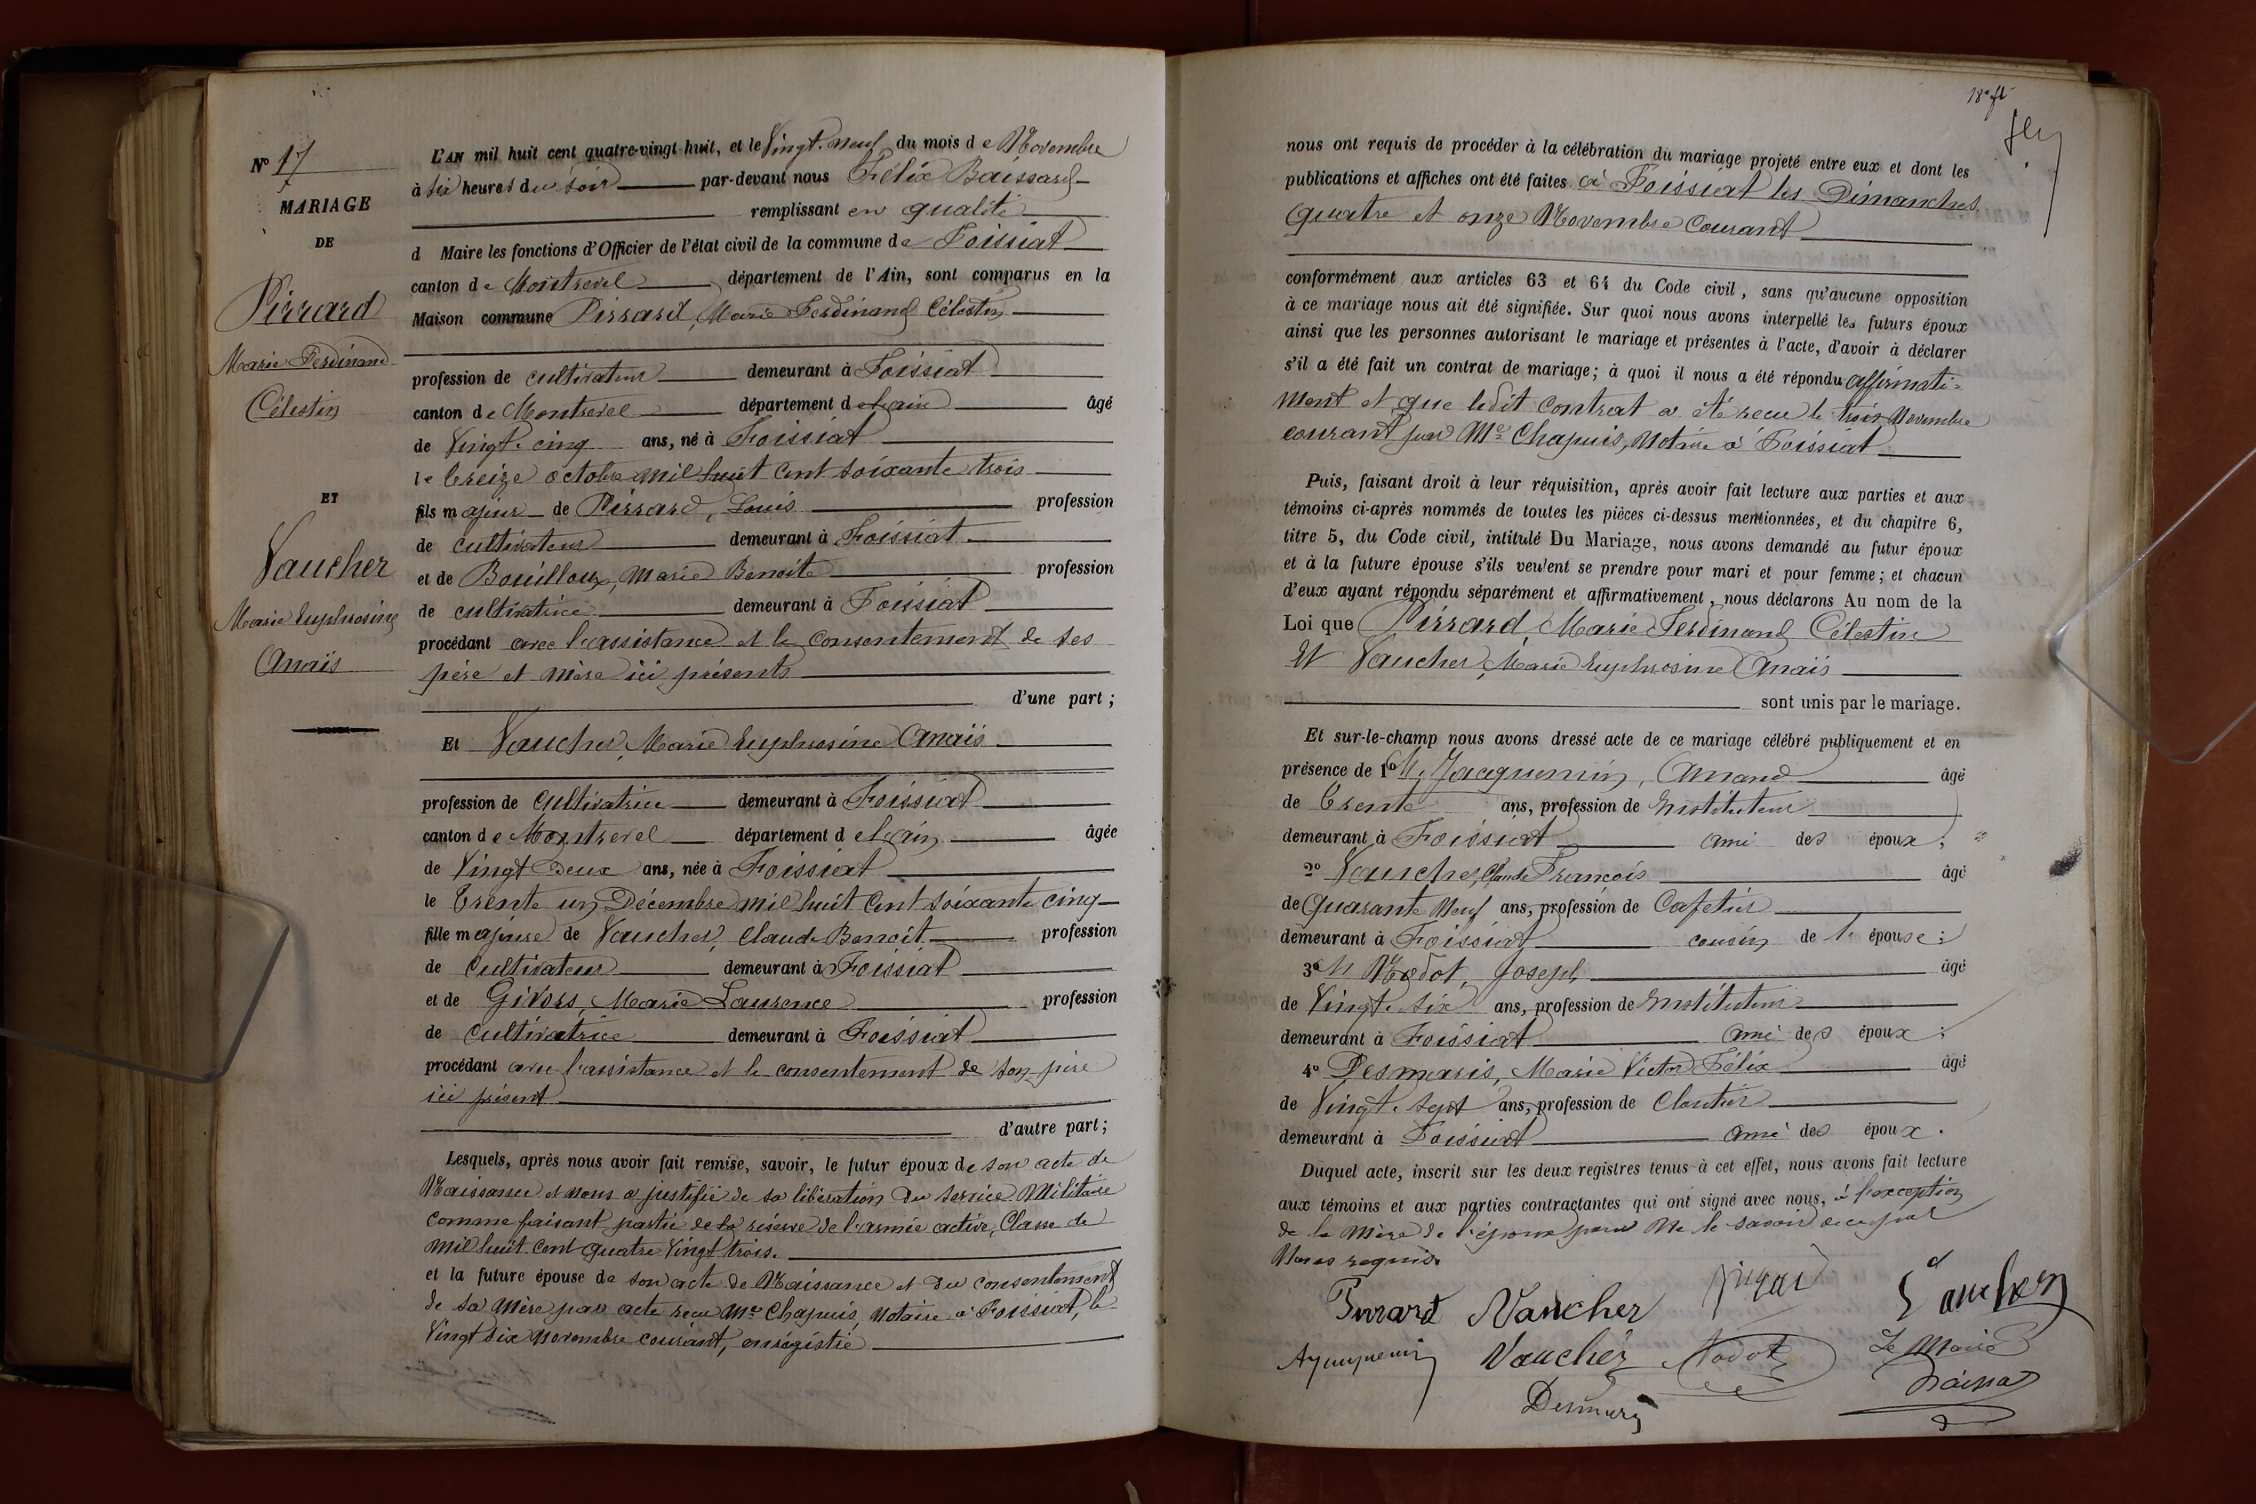 N° 17
MARIAGE
DE
Pirrard
Marie Ferdinand
Célestin
ET
Vaucher
Marie Euphrosine
Anaïs
L'AN mil huit cent quatre-vingt-huit, et le Vingt-neuf du mois de Novembre
à six heures du soir par-devant nous Félix Baissard
remplissant en qualité
d Maire les fonctions d'Officier de l'état civil de la commune de Foissiat
canton de Montrevel département de l'Ain, sont comparus en la
Maison commune Pirrard, Marie Ferdinand Célestin
profession de cultivateur demeurant à Foissiat
canton de Montrevel département de l'ain âgé
de Vingt-cinq ans, né à Foissiat
le treize octobre mil huit cent soixante trois
fils majeur de Pirrard, Louis profession
de cultivateur demeurant à Foissiat
et de Bouilloux, Marie Benoite profession
de cultivatrice demeurant à Foissiat
procédant avec l'assistance et le consentement de ses
père et mère ici présents
d'une part;
Et Vaucher, Marie Euphrosine Anaïs
profession de cultivatrice demeurant à Foissiat
canton de Montrevel département de l'ain âgée
de Vingt Deux ans, née à Foissiat
le trente un Décembre mil huit cent soixante cinq
fille majeure de Vaucher, Claude Benoit profession
de cultivateur demeurant à Foissiat
et de Givors, Marie Laurence profession
de cultivatrice demeurant à Foissiat
procédant avec l'assistance et le consentement de son père
ici présent
d'autre part;
Lesquels, après nous avoir fait remise, savoir, le futur époux de son acte de
Naissance et nous a justifié de sa libération du service Militaire
comme faisant partie de la réserve de l'armée active, Classe de
mil huit cent quatre Vingt trois.
et la future épouse de son acte de Naissance et du consentement
de sa mère par acte reçu Me Chapuis, Notaire à Foissiat, le
Vingt six novembre courant, enregistré
18e ft
nous ont requis de procéder à la célébration du mariage projeté entre eux et dont les
publications et affiches ont été faites à Foissiat les Dimanches
quatre et onze Novembre courant
conformément aux articles 63 et 64 du Code civil, sans qu'aucune opposition
à ce mariage nous ait été signifiée. Sur quoi nous avons interpellé les futurs époux
ainsi que les personnes autorisant le mariage et présentes à l'acte, d'avoir à déclarer
s'il a été fait un contrat de mariage; à quoi il nous a été répondu affirmati-
ment et que ledit contrat a été reçu le trois Novembre
courant par Me Chapuis, Notaire à Foissiat
Puis, faisant droit à leur réquisition, après avoir fait lecture aux parties et aux
témoins ci-après nommés de toutes les pièces ci-dessus mentionnées, et du chapitre 6,
titre 5, du Code civil, intitulé Du Mariage, nous avons demandé au futur époux
et à la future épouse s'ils veulent se prendre pour mari et pour femme; et chacun
d'eux ayant répondu séparément et affirmativement, nous déclarons Au nom de la
Loi que Pirrard, Marie Ferdinand Célestin
Et Vaucher, Marie Euphrosine Anaïs
sont unis par le mariage.
Et sur-le-champ nous avons dressé acte de ce mariage célébré publiquement et en
présence de 1° M. Jacquemin, Amand âgé
de trente ans, profession de Instituteur
demeurant à Foissiat ami des époux;
2° Vaucher, Claude François âgé
de Quarante Neuf ans, profession de Cafetier
demeurant à Foissiat cousin de l' épouse;
3° M Nodot, Joseph âgé
de Vingt-six ans, profession de Instituteur
demeurant à Foissiat ami des époux;
4° Desmaris, Marie Victor Félix âgé
de Vingt-sept ans, profession de Cloutier
demeurant à Foissiat ami des époux.
Duquel acte, inscrit sur les deux registres tenus à cet effet, nous avons fait lecture
aux témoins et aux parties contractantes qui ont signé avec nous, à l'exception
de la mère de l'époux pour ne le savoir de ce par
Nous requis.
Pirrard Vaucher Pirrard Vaucher
Ajacquemin Vaucher Nodot Le Maire
Desmaris Baissard